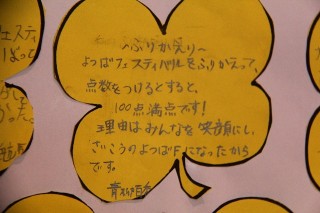 ～ふりかえり～
よつばフェスティバルをふりかえって、
点数をつけるとすると、
100点満点です!
理由はみんなを笑顔にし、
さいこうのよつばFになったから
です。